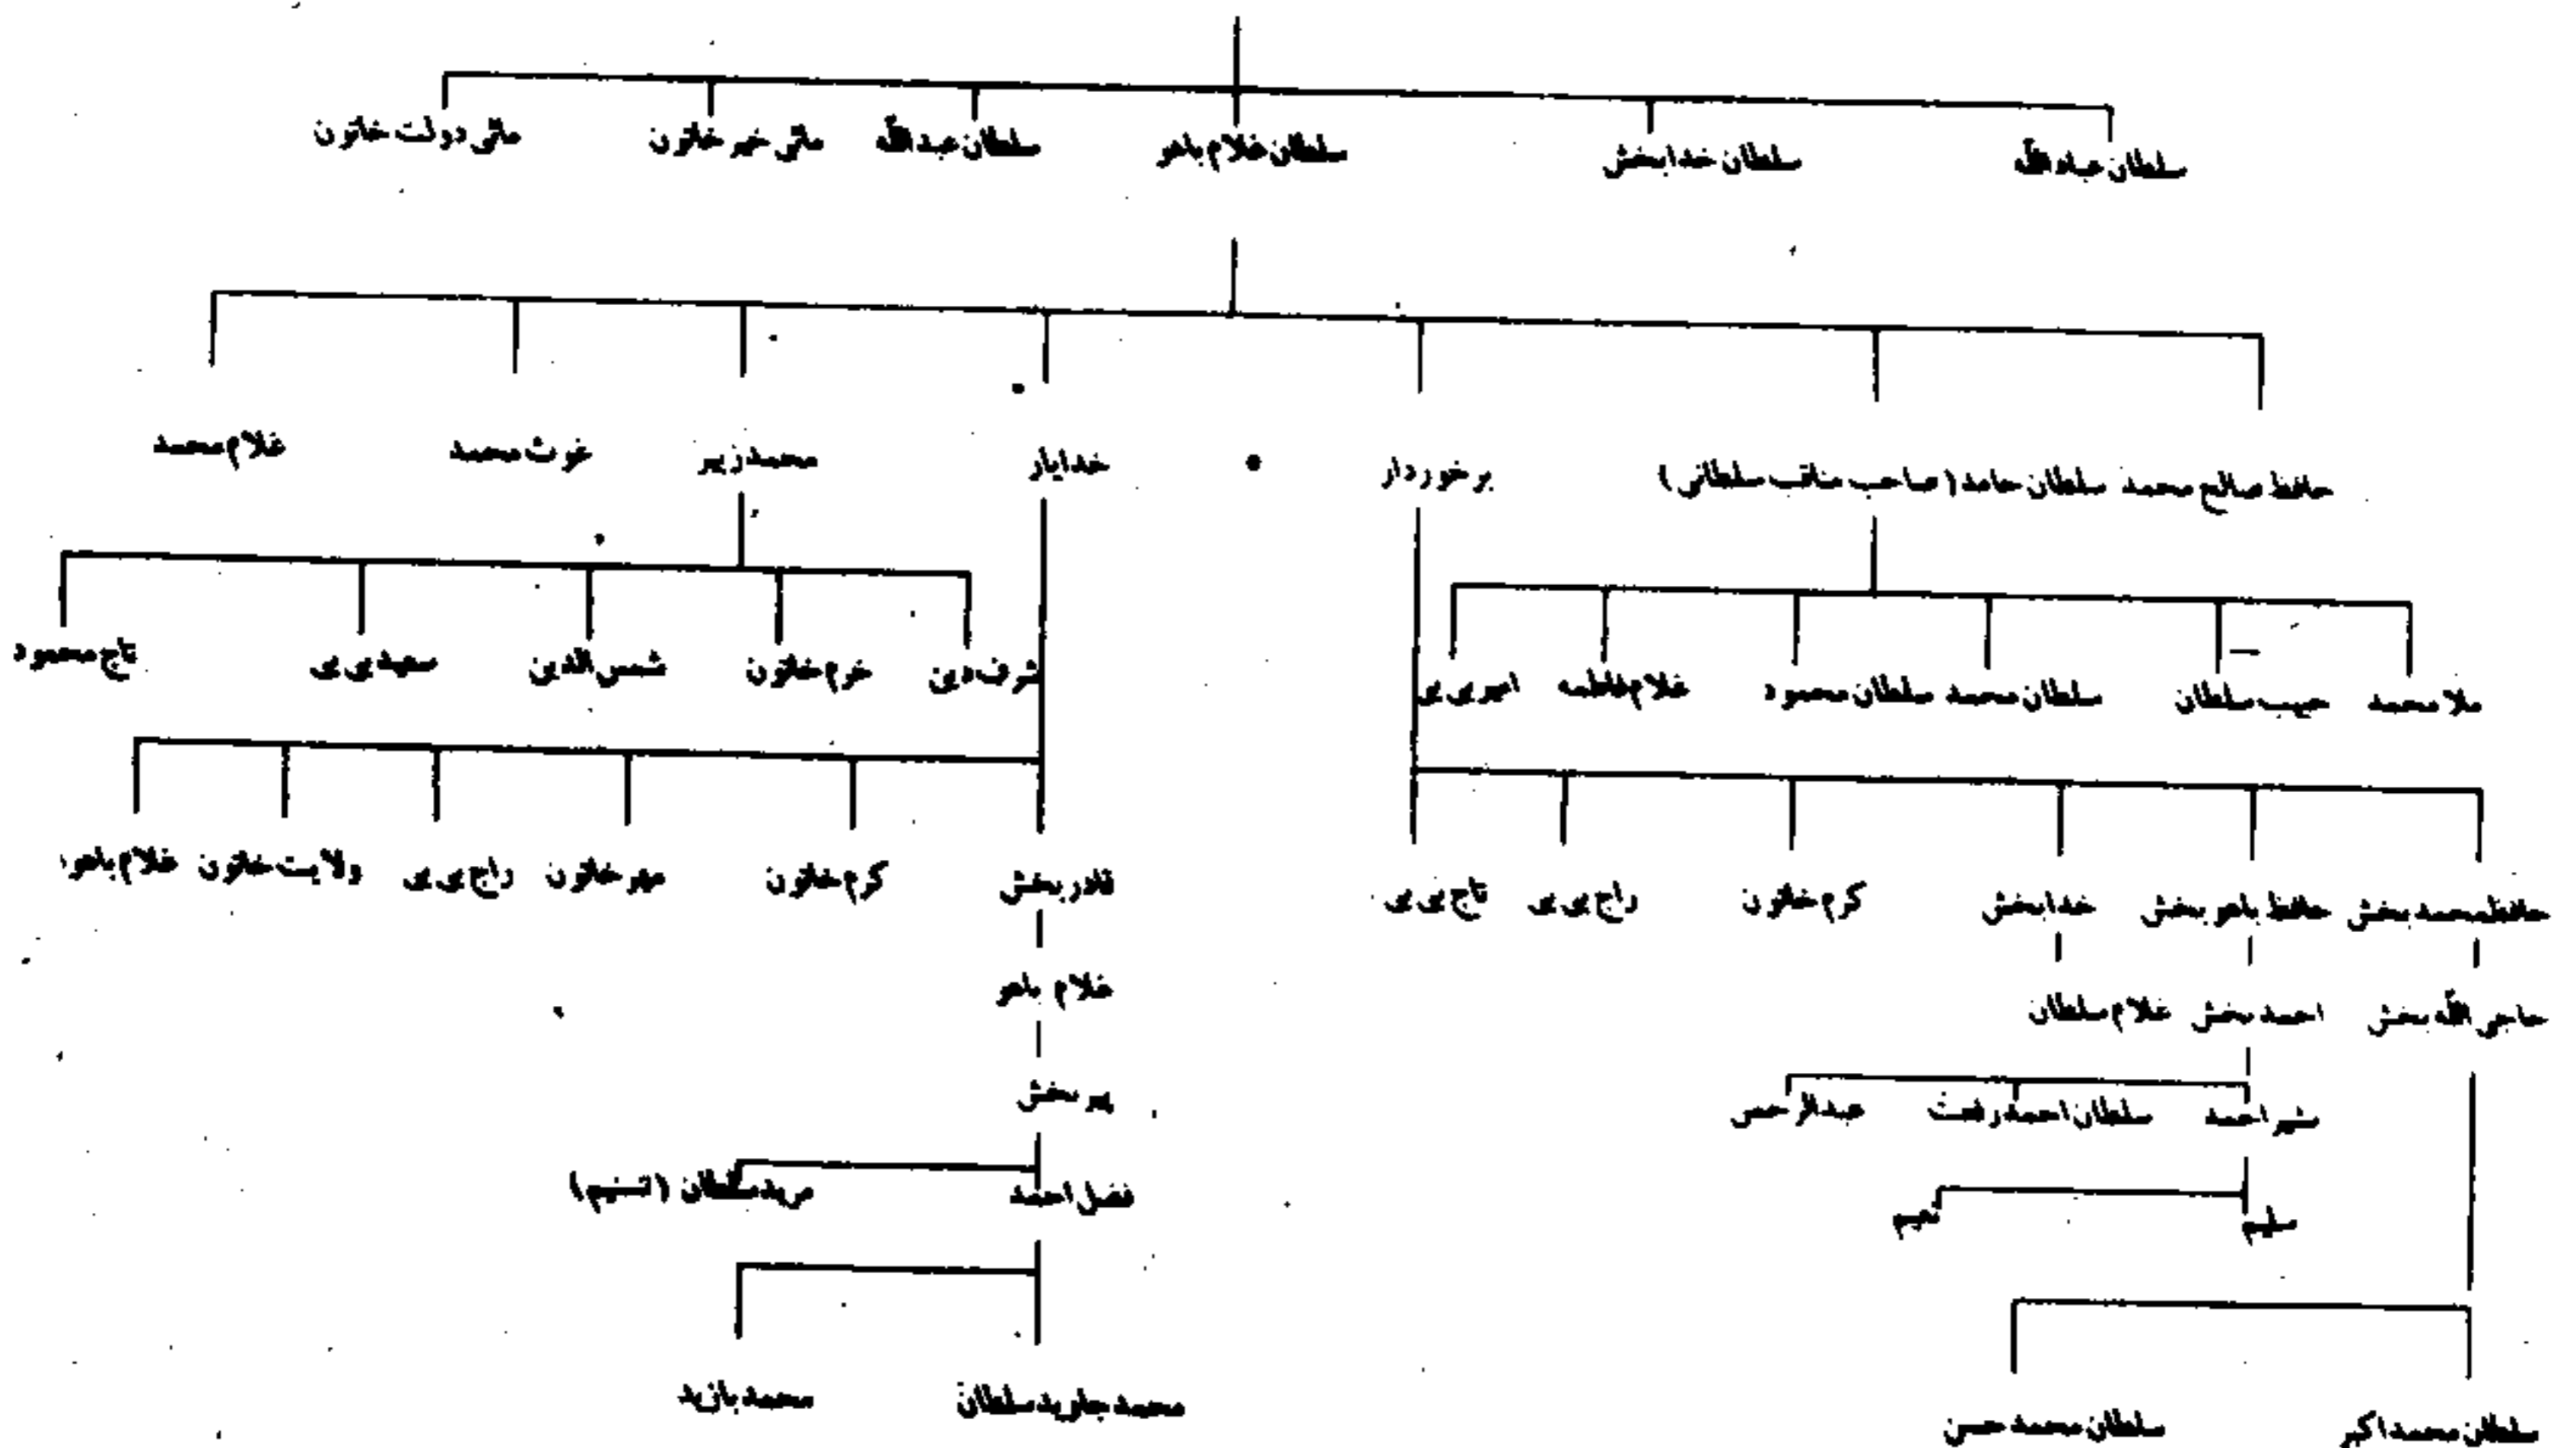 سلطان عبداللہ سلطان خدابخش سلطان غلام باهو سلطان عبداللہ مائی خیر خاتون مائی دولت خاتون
حافظ صالح محمد سلطان حامد (صاحب مناقب سلطانی) برخوردار خدایار محمد زبیر غوث محمد غلام محمد
ملا محمد حبیب سلطان سلطان محمد سلطان محمود غلام فاطمه امیر بی بی شرف دین خرم خاتون شمس الدین سعید بی بی تاج محمود
حافظ محمد بخش حافظ باهو بخش خدابخش کرم خاتون راج بی بی تاج بی بی قادر بخش کرم خاتون مهر خاتون راج بی بی ولایت خاتون غلام باهو
حاجی اللہ بخش احمد بخش غلام سلطان غلام باهو
احمد سلطان احمد رفعت عبدالرحمن پیر بخش
سلیم نعیم فضل احمد مرید سلطان (تسنیم)
سلطان محمد اکبر سلطان محمد حسن محمد جاوید سلطان محمد بازید